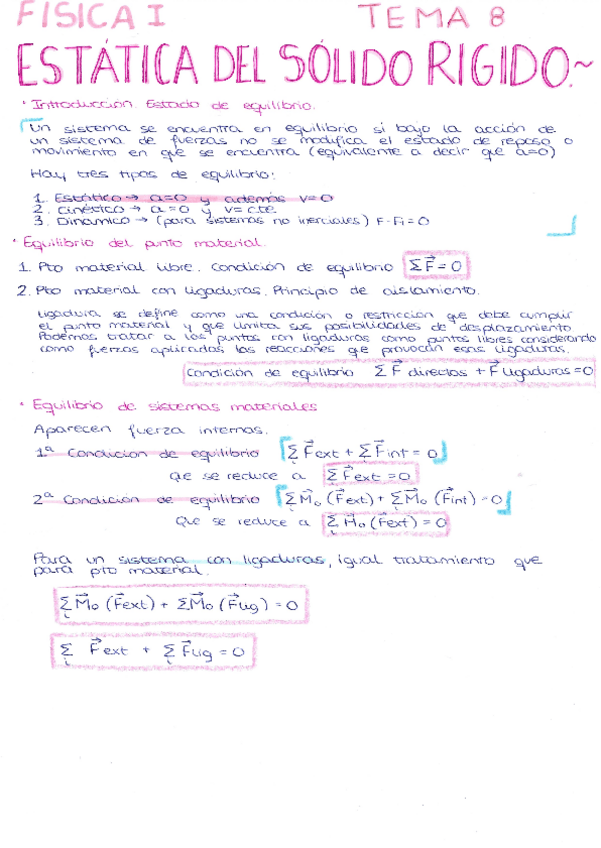 FISICA I TEMA 8
ESTÁTICA DEL SÓLIDO RIGIDO.~
· Introducción. Estado de equilibrio.
Un sistema se encuentra en equilibrio si bajo la acción de
un sistema de fuerzas no se modifica el estado de reposo o
movimiento en que se encuentra (equivalente a decir que a=0)
Hay tres tipos de equilibrio:
1. Estático → a=0 y además v=0
2. Cinético → a=0 y v=cte.
3. Dinámico → (para sistemas no inerciales) F-Fi=0
· Equilibrio del punto material.
1. Pto material libre. Condición de equilibrio Σ F⃗ = 0
2. Pto material con ligaduras. Principio de aislamiento.
Ligadura se define como una condición o restricción que debe cumplir
el punto material y que limita sus posibilidades de desplazamiento
Podemos tratar a los puntos con ligaduras como puntos libres considerando
como fuerzas aplicadas las reacciones qe provocan esas ligaduras.
Condición de equilibrio Σ F⃗ directas + F⃗ ligaduras = 0
· Equilibrio de sistemas materiales
Aparecen fuerza internas.
1ª Condición de equilibrio Σ F⃗ext + Σ F⃗int = 0
Qe se reduce a Σ F⃗ext = 0
2ª Condición de equilibrio Σ M⃗o (F⃗ext) + Σ M⃗o (F⃗int) = 0
Que se reduce a Σ M⃗o (F⃗ext) = 0
Para un sistema con ligaduras, igual tratamiento que
para pto material.
Σ M⃗o (F⃗ext) + Σ M⃗o (F⃗lig) = 0
Σ F⃗ext + Σ F⃗lig = 0